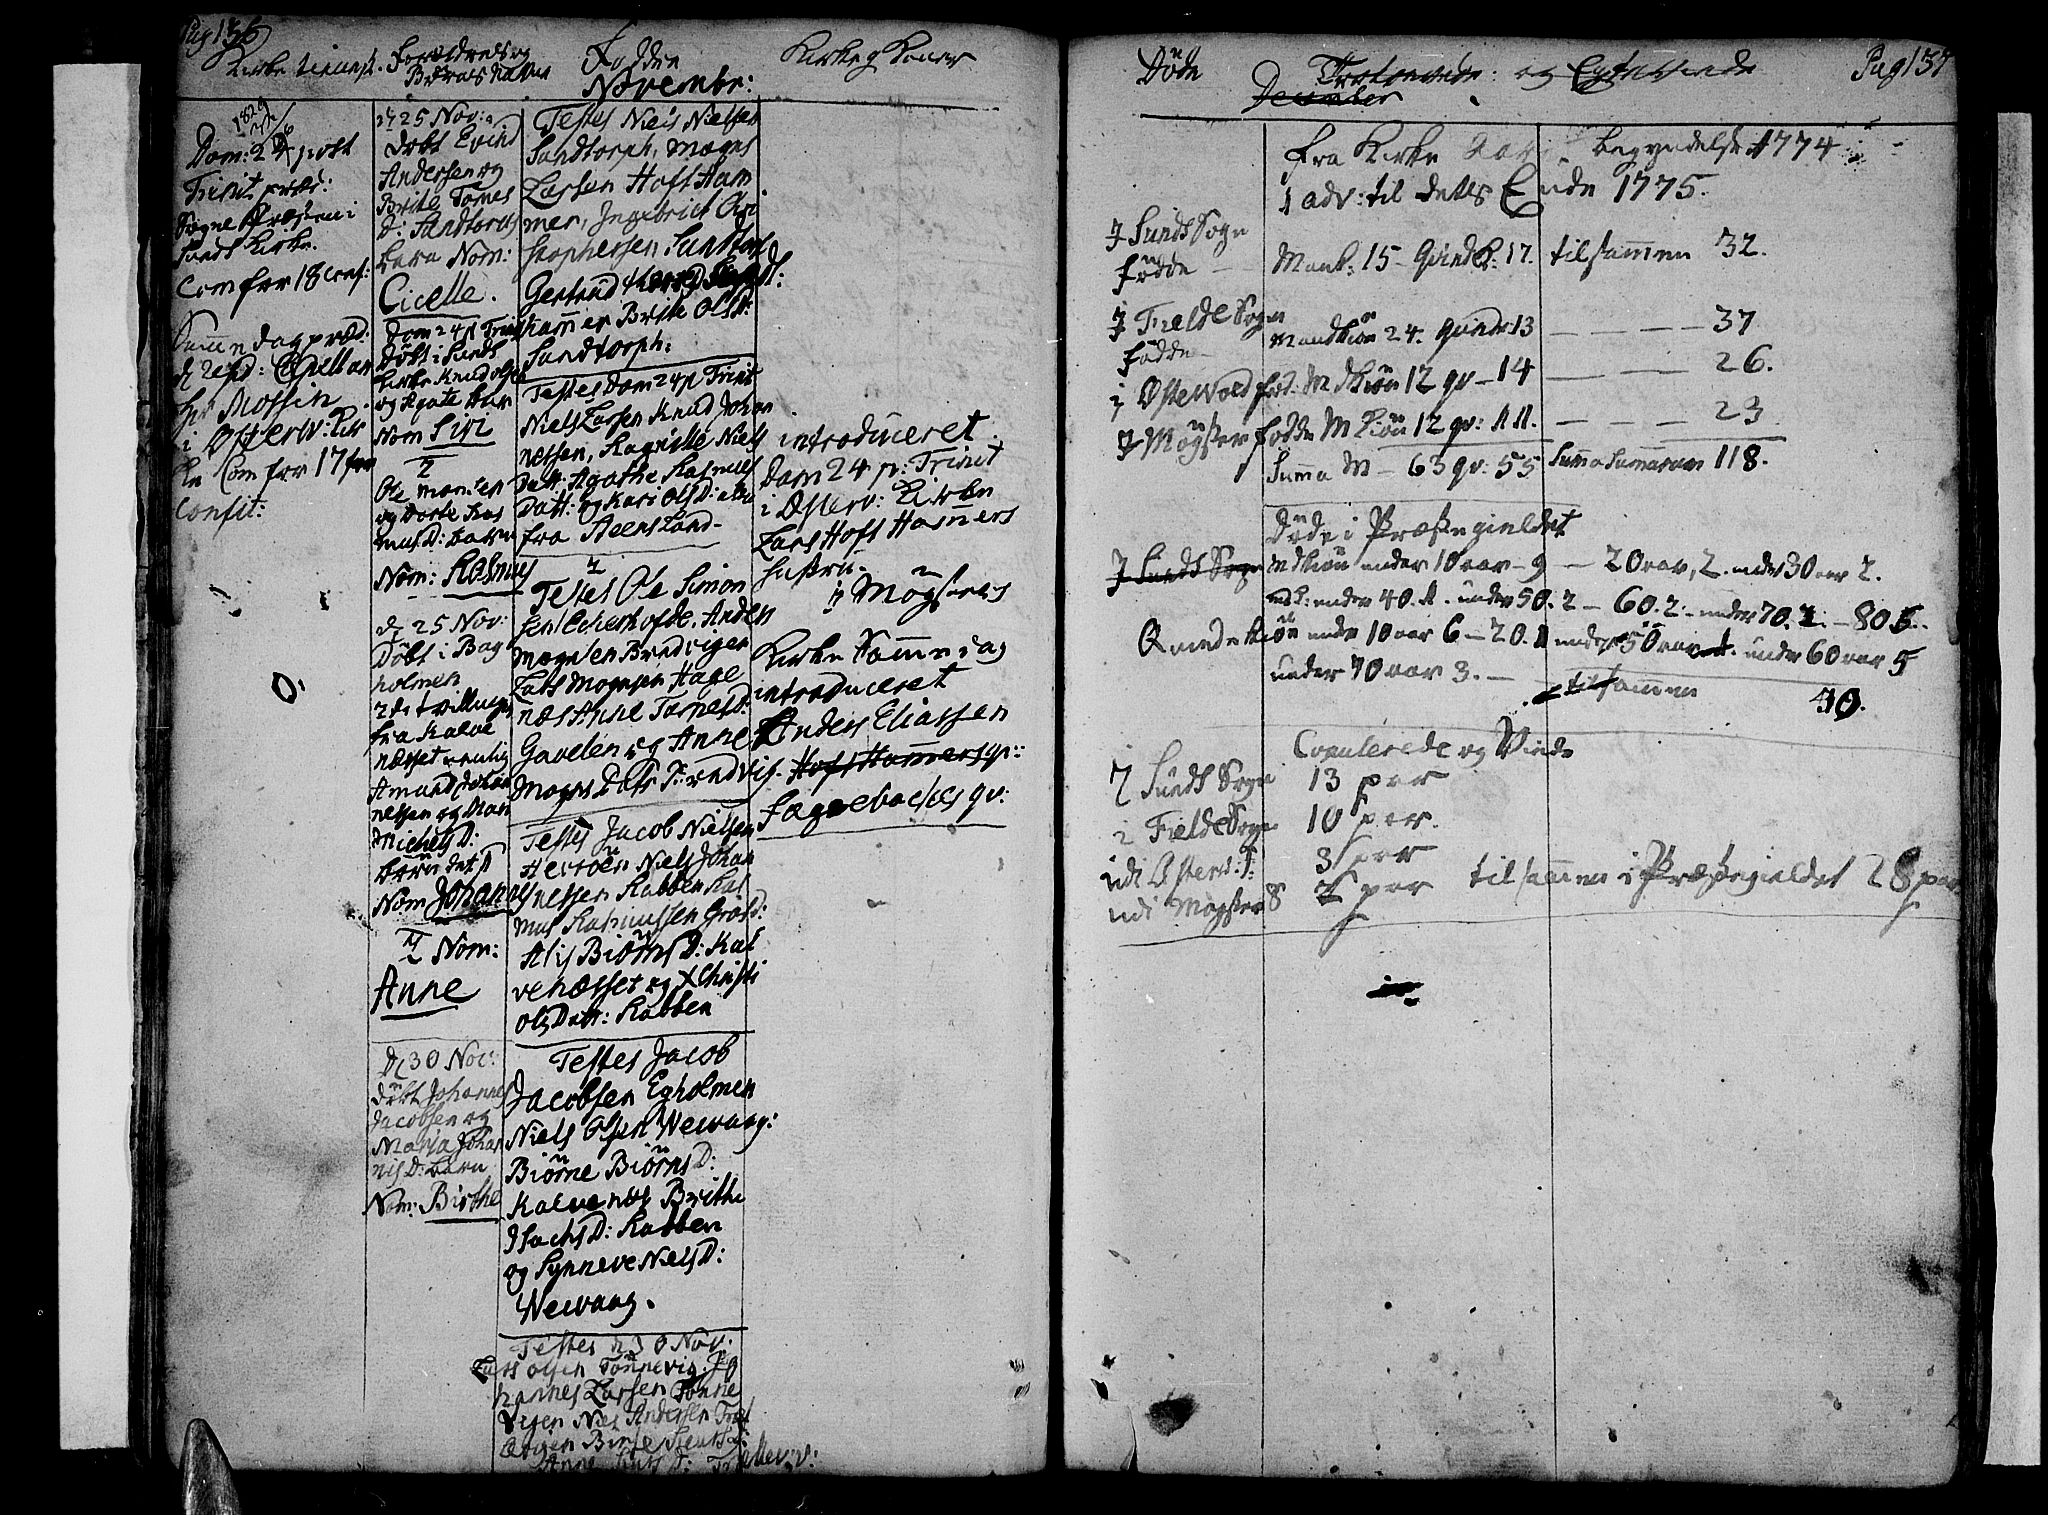 Pag 136
Kirke tienest. Forældres og
Børnes Nafne
Fødde
Novembr:
Kirkeg Koner
Dom: 24 post
Trinit præd:
Sogne Præsten i
Sunds Kirke.
Com for 18 Conf:
Samme dag præd:
d resid: Capellan
Hr Mossin
i Østerv: Kir
ke Com for 17
Confit:
d 25 Nov:
døbt Evind
Andersen og
Brite Tomes
D: Sandtorvs
barn Nom:
Cicelle.
Dom 24 p Trinit
Døbt i Sunds
Kirke Knud Olsen
og Agate
Nom Siri
Ole Monsen
og Dorte Ras
mus D: barn
Nom: Rasmus
d 25 Nov:
Døbt i Bag
holmen
2de tvillinger
fra Kalve
næsset nemlig
Amund Johan
nessen og Mari
Michels D:
børn det 1
Nom Johannes
2 Nom:
Anne
D 30 Nov:
døbt Johannes
Jacobsen og
Marja Johan
nis D: barn
Nom: Birthe
Testes Niels Nielsen
Sandtorph, Mogns
Larsen Hoft Ham
mer, Ingebrict Cri
stophersen Sandtor
Gertrud
hammer Brite Ols D:
Sandtorph:
Testes Dom 24 p Trinit
Niels Larsen Knud Johan
nessen, Ragnille Niels
Datt: Agathe Rasmus
Datt: og Kari Ols D: alle
fra Steensland
Testes Ole Simon
sen Anders
Mognsen Bradvigen
Lars Mognsen Hage
næs Anne Tornes D:
Gavelen og Anne
Mogns Datt Bradvig.
Testes Jacob Nielsen
Herrøen Niels Johan
nessen Rabben Ras
mus Rasmussen
Alis Biørns D: Kal
venæsset og Christi
Ols Datt: Rabben
Testes Jacob
Jacobsen Egholmen
Niels Olsen Wewaag:
Biørne Biørns D:
Kalvenæs Brithe
Isachs D: Rabben
og Synneve Niels D:
Wewaag.
Testes d 30 Nov.
Lars Olsen Tønnevig. Jo
hannes Larsen Tønne
vigen Niels Andersen
introduceret
Dom 24 p: Trinit
i Østerv: Kirke
Lars Hoft Hamers
hustru.
I Møgsters
Kirke Samme dag
introduceret
Anders Eliassen
Hoft Hammers qv:
Fagerbackes qv:
Døde
Trolovede: og Egteviede
December
Pag 137
fra Kirke begyndelse 1774
1 adv: til dets Ende 1775.
I Sunds Sogn
fødde
Mank: 15 Qvindek: 17. tilsammen 32.
I Fielde Sogn
fødde
Mandkiøn 24. qvindk 13 37
i Østevold fød: Mdkiøn 12 qv 14 26.
I Møgster fødde M kiøn 12 qv: 11. 23
Summa M 63 qv: 55 Summa Summarum 118.
døde i Præstegieldet
I Sunds Sogn Mdkiøn under 10 aar 9 — 20 aar, 2. under 30 aar 2.
under 40. 1. under 50. 2 — 60. 2. under 70. — 80
Qvindekiøn under 10 aar 6 — 20. 1 under 50 aar under 60 aar 5
under 70 aar 3.
tilsammen 40.
Copulerede og Viede
I Sunds Sogn 13 par
i Fielde Sogn 10 par.
udi Østerv: 3 par
udi Møgster 2 par tilsammen i Præstegieldet 28 par